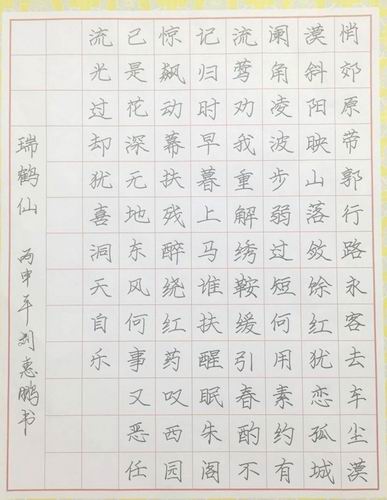 悄郊原带郭行路永客去车尘漠
漠斜阳映山落敛馀红犹恋孤城
阑角凌波步弱过短何用素约有
流莺劝我重解绣鞍缓引春酌不
记归时早暮上马谁扶醒眠朱阁
惊飙动幕扶残醉绕红药叹西园
已是花深无地东风何事又恶任
流光过却犹喜洞天自乐
瑞鹤仙 丙申年刘惠鹏书